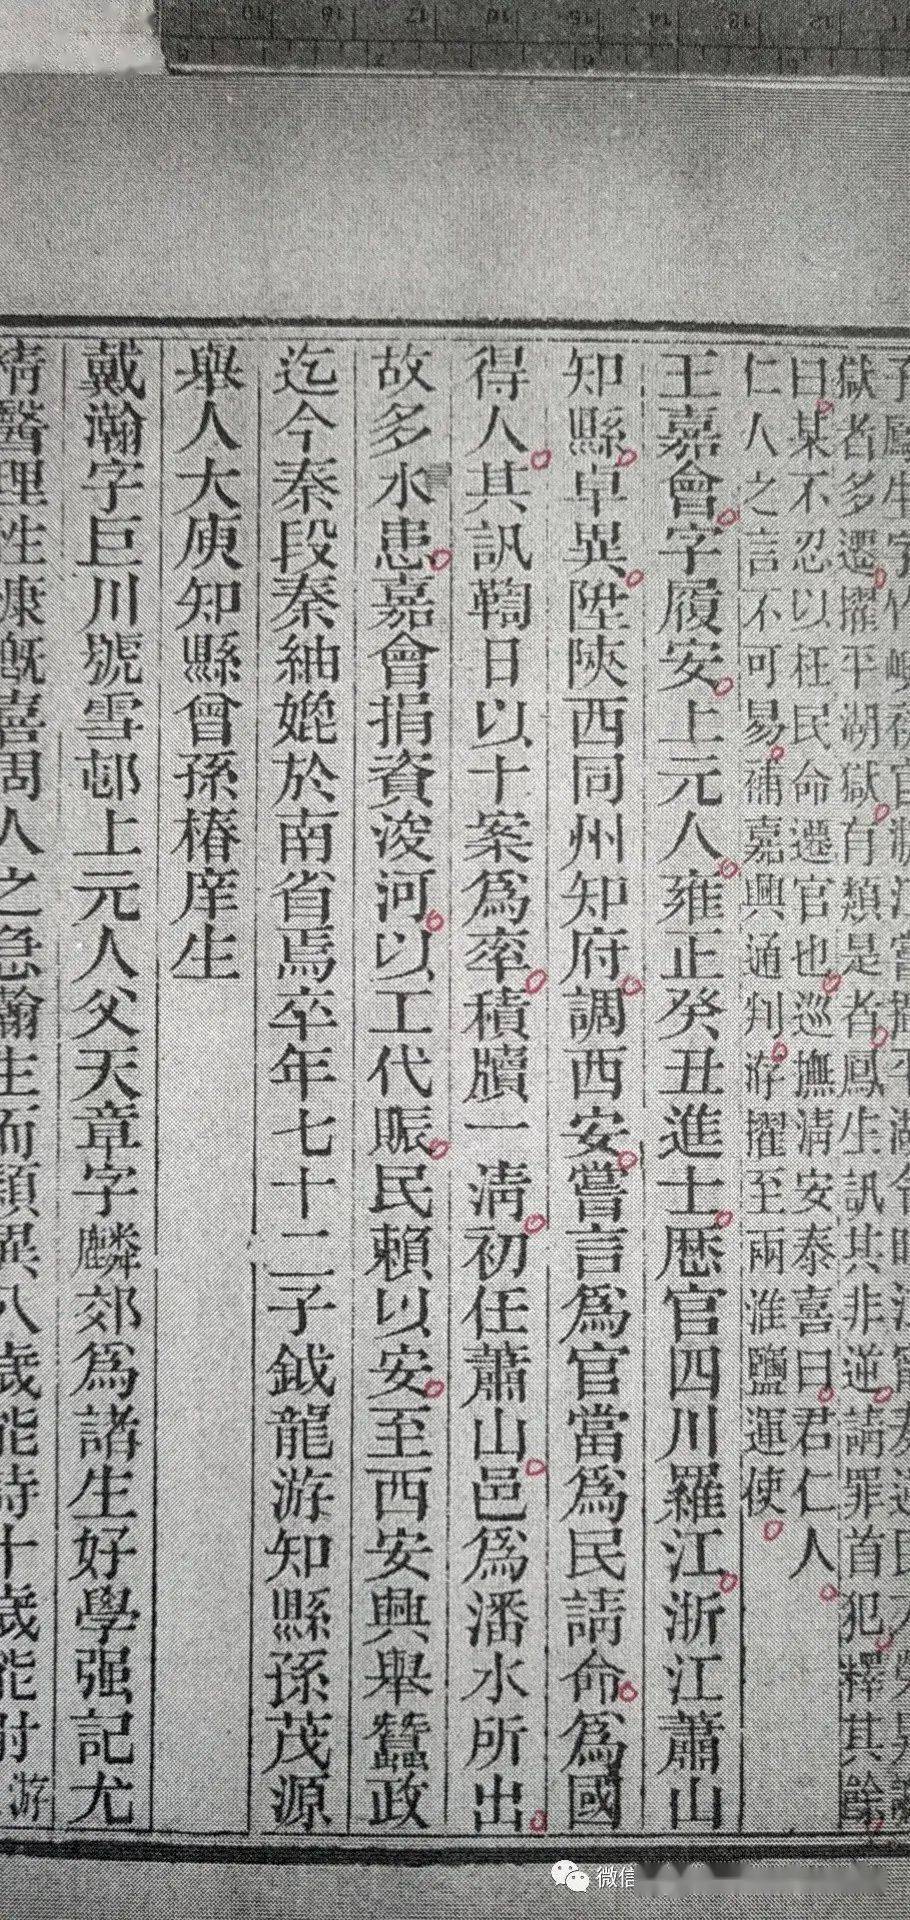 獄者多遷擢平湖獄有類是者鳳生訊其非逆請罪首犯釋其餘
曰某不忍以枉民命遷官也巡撫清安泰喜曰君仁人
仁人之言不可易補嘉興通判洊擢至兩淮鹽運使
王嘉會字履安上元人雍正癸丑進士歷官四川羅江浙江蕭山
知縣卓異陞陝西同州知府調西安嘗言為官當為民請命為國
得人其訊鞫日以十案為率積牘一清初任蕭山邑為潘水所出
故多水患嘉會捐資浚河以工代賑民賴以安至西安興舉蠶政
迄今秦段秦紬媲於南省焉卒年七十二子鉞龍游知縣孫茂源
舉人大庾知縣曾孫椿庠生
戴瀚字巨川號雪邨上元人父天章字麟郊為諸生好學强記尤
精醫理性慷慨喜周人之急瀚生而穎異八歲能詩十歲能射游
微信